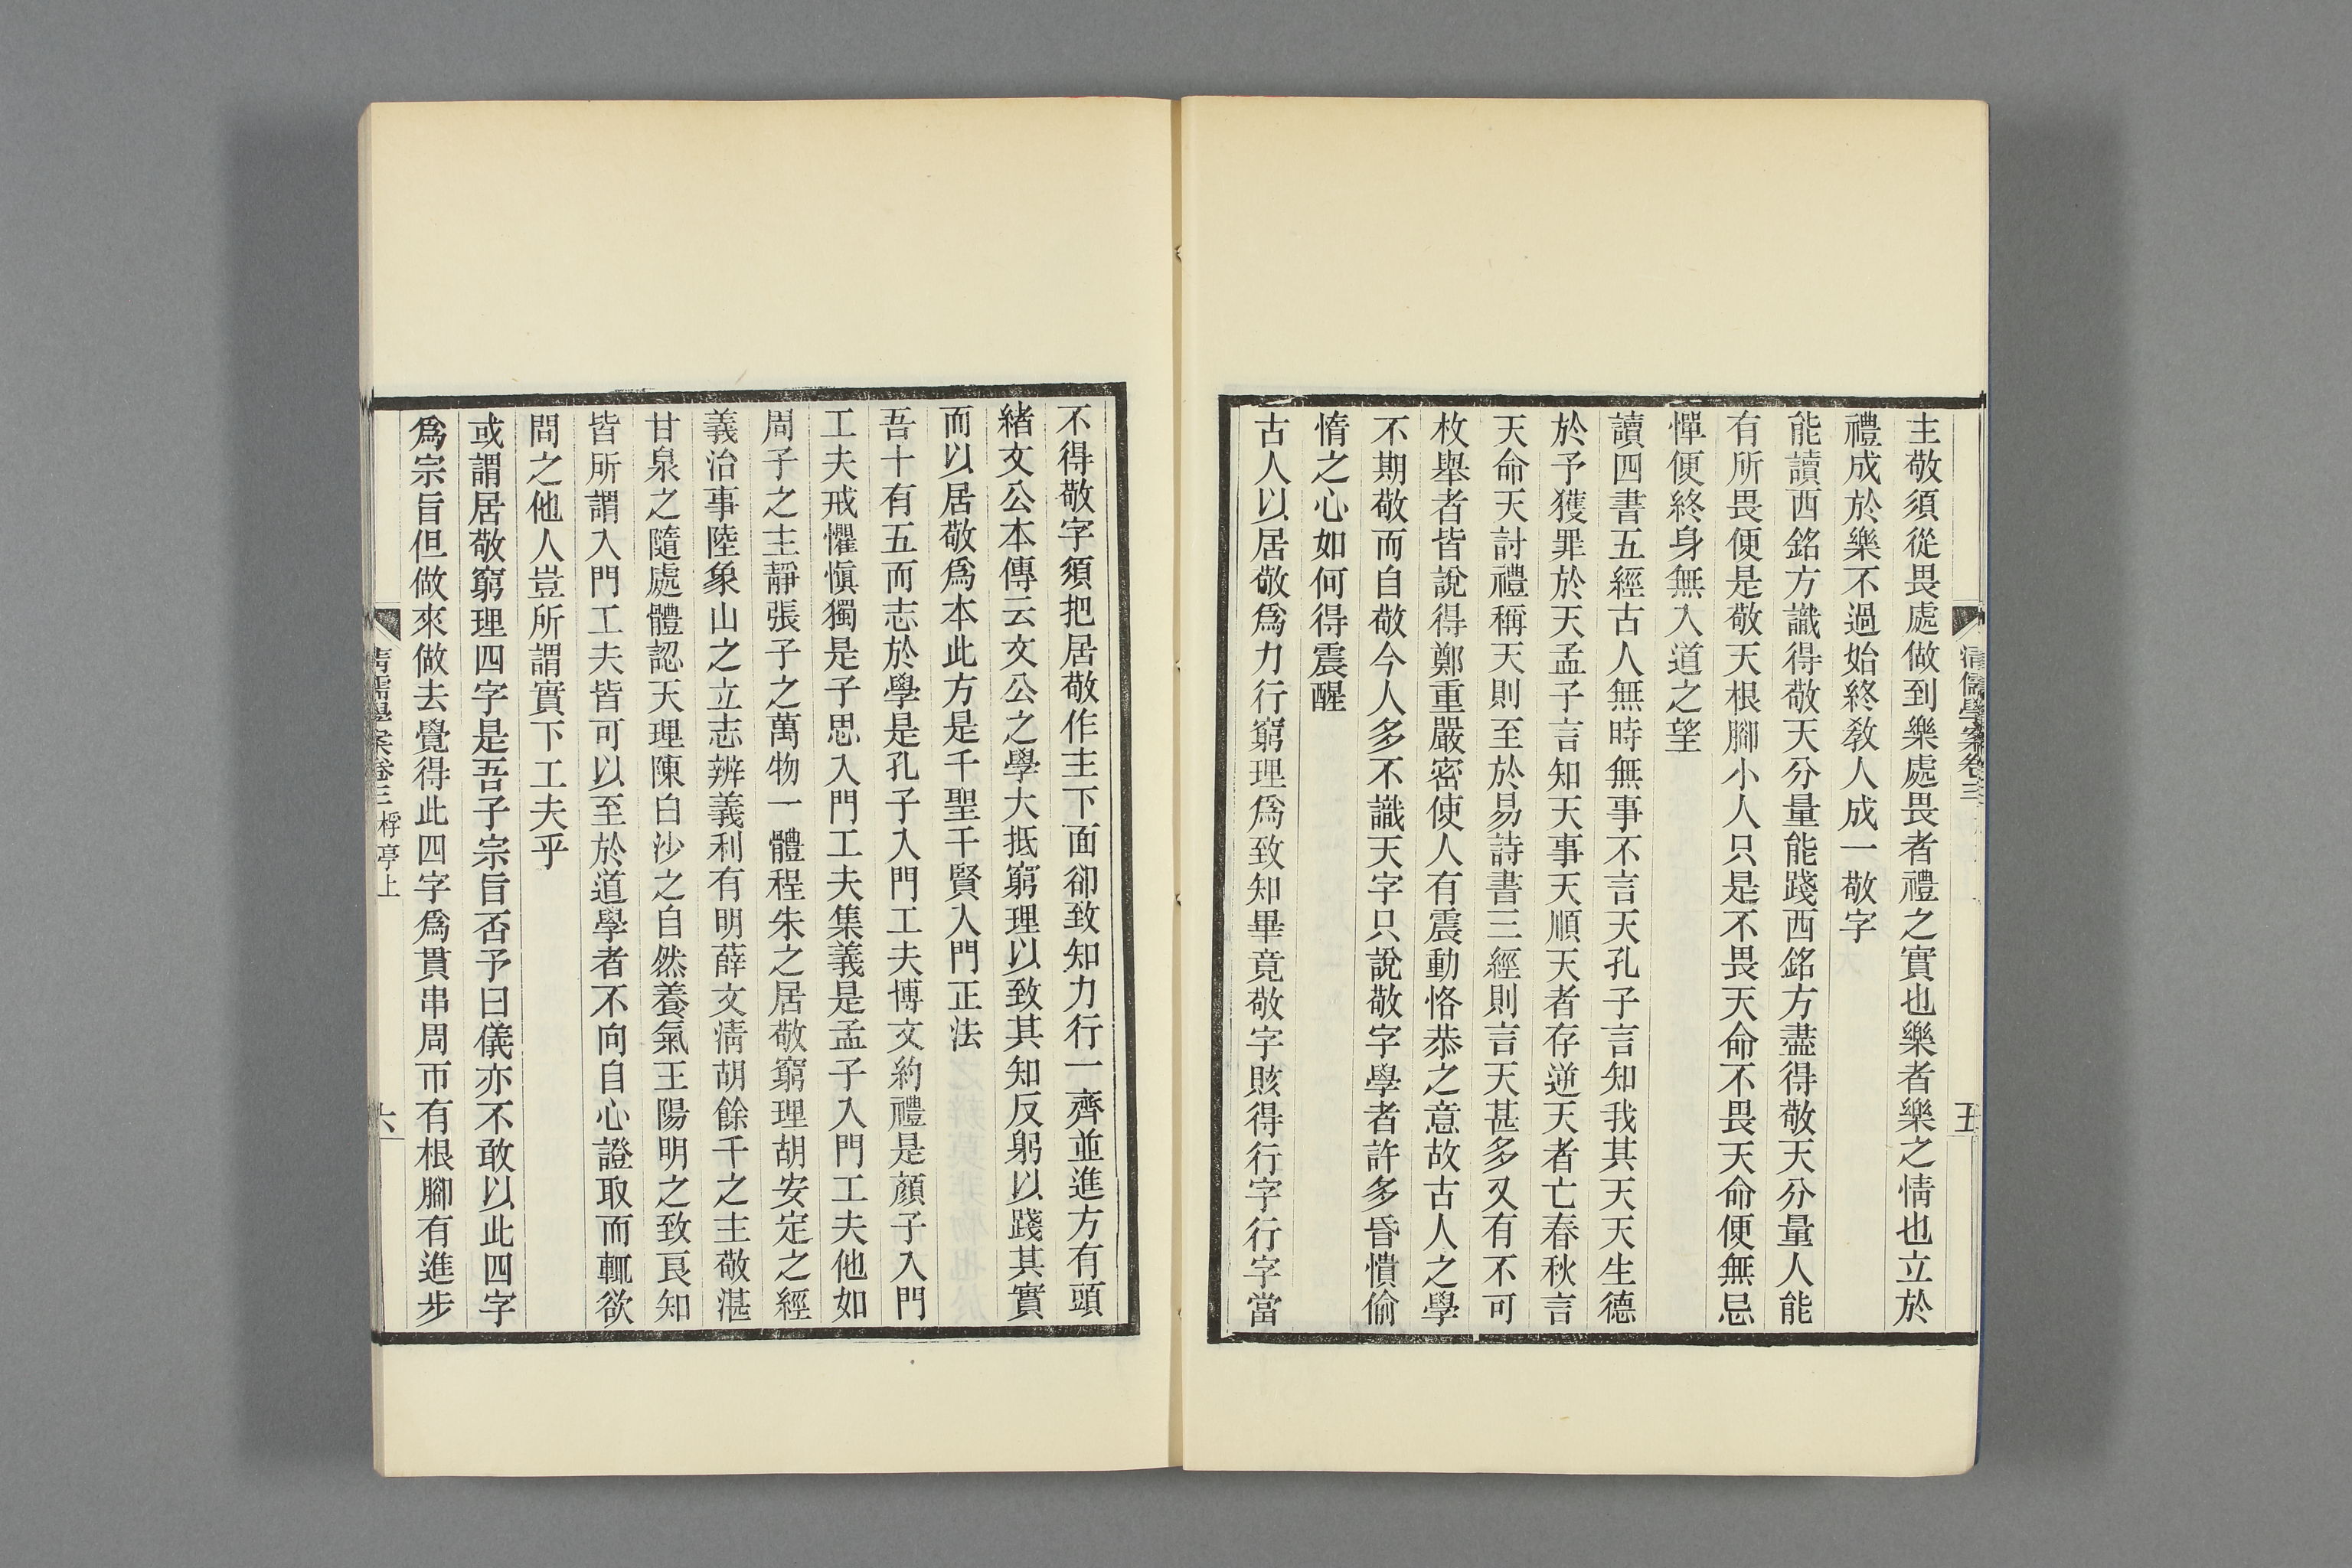 清儒學案卷三
五
主敬須從畏處做到樂處畏者禮之實也樂者樂之情也立於
禮成於樂不過始終教人成一敬字
能讀西銘方識得敬天分量能踐西銘方盡得敬天分量人能
有所畏便是敬天根腳小人只是不畏天命不畏天命便無忌
憚便終身無入道之望
讀四書五經古人無時無事不言天孔子言知我其天天生德
於予獲罪於天孟子言知天事天順天者存逆天者亡春秋言
天命天討禮稱天則至於易詩書三經則言天甚多又有不可
枚舉者皆說得鄭重嚴密使人有震動恪恭之意故古人之學
不期敬而自敬今人多不識天字只說敬字學者許多昏憒偷
惰之心如何得震醒
古人以居敬爲力行窮理爲致知畢竟敬字賅得行字行字當
不得敬字須把居敬作主下面卻致知力行一齊並進方有頭
緒文公本傳云文公之學大抵窮理以致其知反躬以踐其實
而以居敬爲本此方是千聖千賢入門正法
吾十有五而志於學是孔子入門工夫博文約禮是顏子入門
工夫戒懼愼獨是子思入門工夫集義是孟子入門工夫他如
周子之主靜張子之萬物一體程朱之居敬窮理胡安定之經
義治事陸象山之立志辨義利有明薛文淸胡餘干之主敬湛
甘泉之隨處體認天理陳白沙之自然養氣王陽明之致良知
皆所謂入門工夫皆可以至於道學者不向自心證取而輒欲
問之他人豈所謂實下工夫乎
或謂居敬窮理四字是吾子宗旨否予曰儀亦不敢以此四字
爲宗旨但做來做去覺得此四字爲貫串周帀有根腳有進步
清儒學案卷三 桴亭上
六